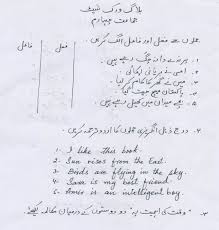 بلاگ ورک شیٹ
جماعت چہارم
جملوں سے فعل اور فاعل الگ کریں۔
فعل
فاعل
۱۔ پرندے دانہ چگ رہے ہیں۔
۲۔ امی نے بریانی پکائی
۳۔ میں نے گھر کا کام کر لیا۔
۴۔ پاکستان میچ جیت گیا
۵۔ بچے میدان میں کھیل رہے ہیں۔
۲۔ درج ذیل انگریزی جملوں کا اردو ترجمہ کریں۔
1. I like this book.
2. Sun rises from the East.
3. Birds are flying in the sky.
4. Sam is my best friend
5. Amir is an intelligent boy.
۳۔ "وقت کی اہمیت" پر دو دوستوں کے درمیان مکالمہ لکھیئے۔